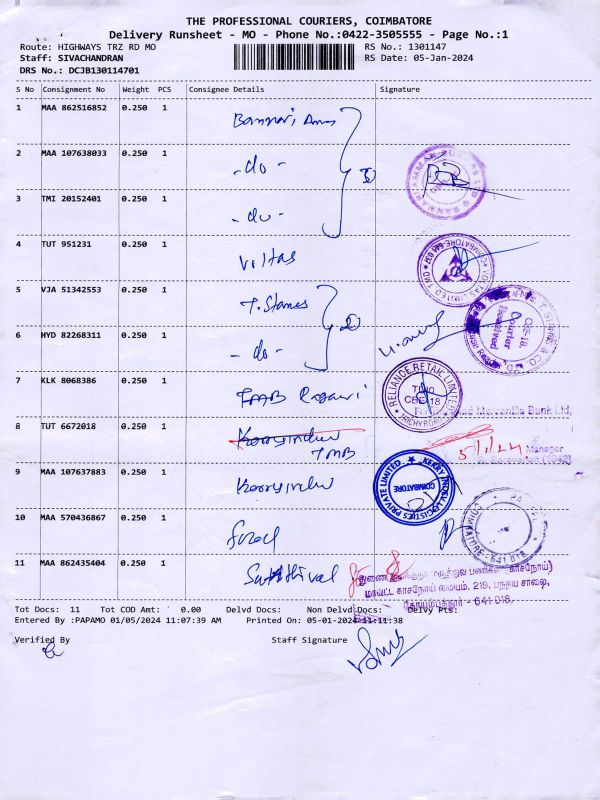 THE PROFESSIONAL COURIERS, COIMBATORE
Delivery Runsheet - MO - Phone No.:0422-3505555 - Page No.:1
Route: HIGHWAYS TRZ RD MO RS No.: 1301147
Staff: SIVACHANDRAN RS Date: 05-Jan-2024
DRS No.: DCJB130114701
S No Consignment No Weight PCS Consignee Details Signature
1 MAA 862516852 0.250 1
2 MAA 107638033 0.250 1 -do-
3 TMI 20152401 0.250 1 -do-
4 TUT 951231 0.250 1 Voltas
COIMBATORE-641 018
VOLTAS LIMITED
5 VJA 51342553 0.250 1 T. Stanes
CBE-18.
Courier
Received
6 HYD 82268311 0.250 1 -do-
7 KLK 8068386 0.250 1
RELIANCE RETAIL LIMITED
CBE-18
TRICHY ROAD
Mercantile Bank Ltd,
8 TUT 6672018 0.250 1 Kerryindev
TMB
5/1/24
Manager
9 MAA 107637883 0.250 1 Kerryindev
KERRY INDEV LOGISTICS PRIVATE LIMITED
COIMBATORE
10 MAA 570436867 0.250 1
COIMBATORE - 641 018
11 MAA 862435404 0.250 1
மாவட்ட காசநோய் மையம், 219, பந்தய சாலை,
கோயம்புத்தூர் - 641 018.
Tot Docs: 11 Tot COD Amt: 0.00 Delvd Docs: Non Delvd Docs: Delvy Pts:
Entered By :PAPAMO 01/05/2024 11:07:39 AM Printed On: 05-01-2024 11:11:38
Verified By Staff Signature